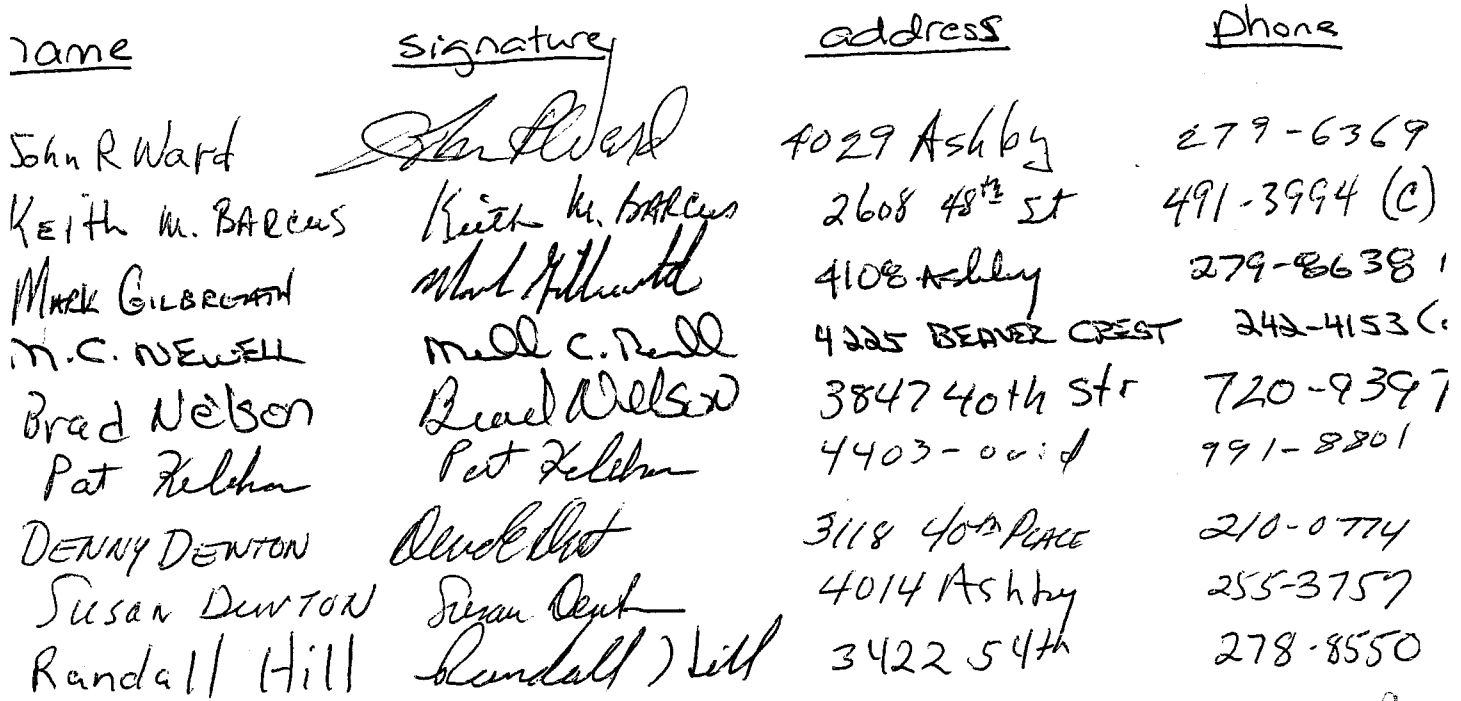 name signature address phone
John R Ward John R Ward 4029 Ashby 279-6369
KEith M. BARCUS Keith M. BARCUS 2608 48th St 491-3994 (C)
MARK GILBREATH Mark Gilbreath 4108 Ashby 279-8638
M.C. NEWELL C. 4225 BEAVER CREST 242-4153 (
Brad Nelson Brad Nelson 3847 40th Str 720-9397
Pat Kelehan Pat Kelehan 4403-ovid 991-8801
DENNY DENTON 3118 40th PLACE 210-0774
SUSAN DENTON Susan Denton 4014 Ashby 255-3757
Randall Hill Randall Hill 3422 54th 278-8550